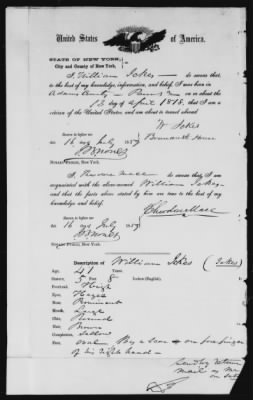 United States of America.
STATE OF NEW YORK,
City and County of New York,
I, William Sokes do swear, that
to the best of my knowledge, information, and belief, I was born in
Adams County on or about the
13 day of April 1818, that I am a
citizen of the United States, and am about to travel abroad.
Wm Sokes
Sworn to before me
this 16 day July 1859
NOTARY PUBLIC, New York.
I, Theodore Mace do swear, that I am
acquainted with the above-named William Sokes
and that the facts above stated by him are true to the best of my
knowledge and belief.
Theodore Mace
Sworn to before me
this 16 day July 1859
NOTARY PUBLIC, New York.
Description of William Sokes (Sokes)
Age, 41 Years.
Stature, 5 Feet 8 Inches (English).
Forehead, High
Eyes, Hazel
Nose, Prominent
Mouth, Large
Chin, Round
Hair, Brown
Complexion, Sallow
Face, oval Has a scar on forefinger
of his right hand
Send by return
mail